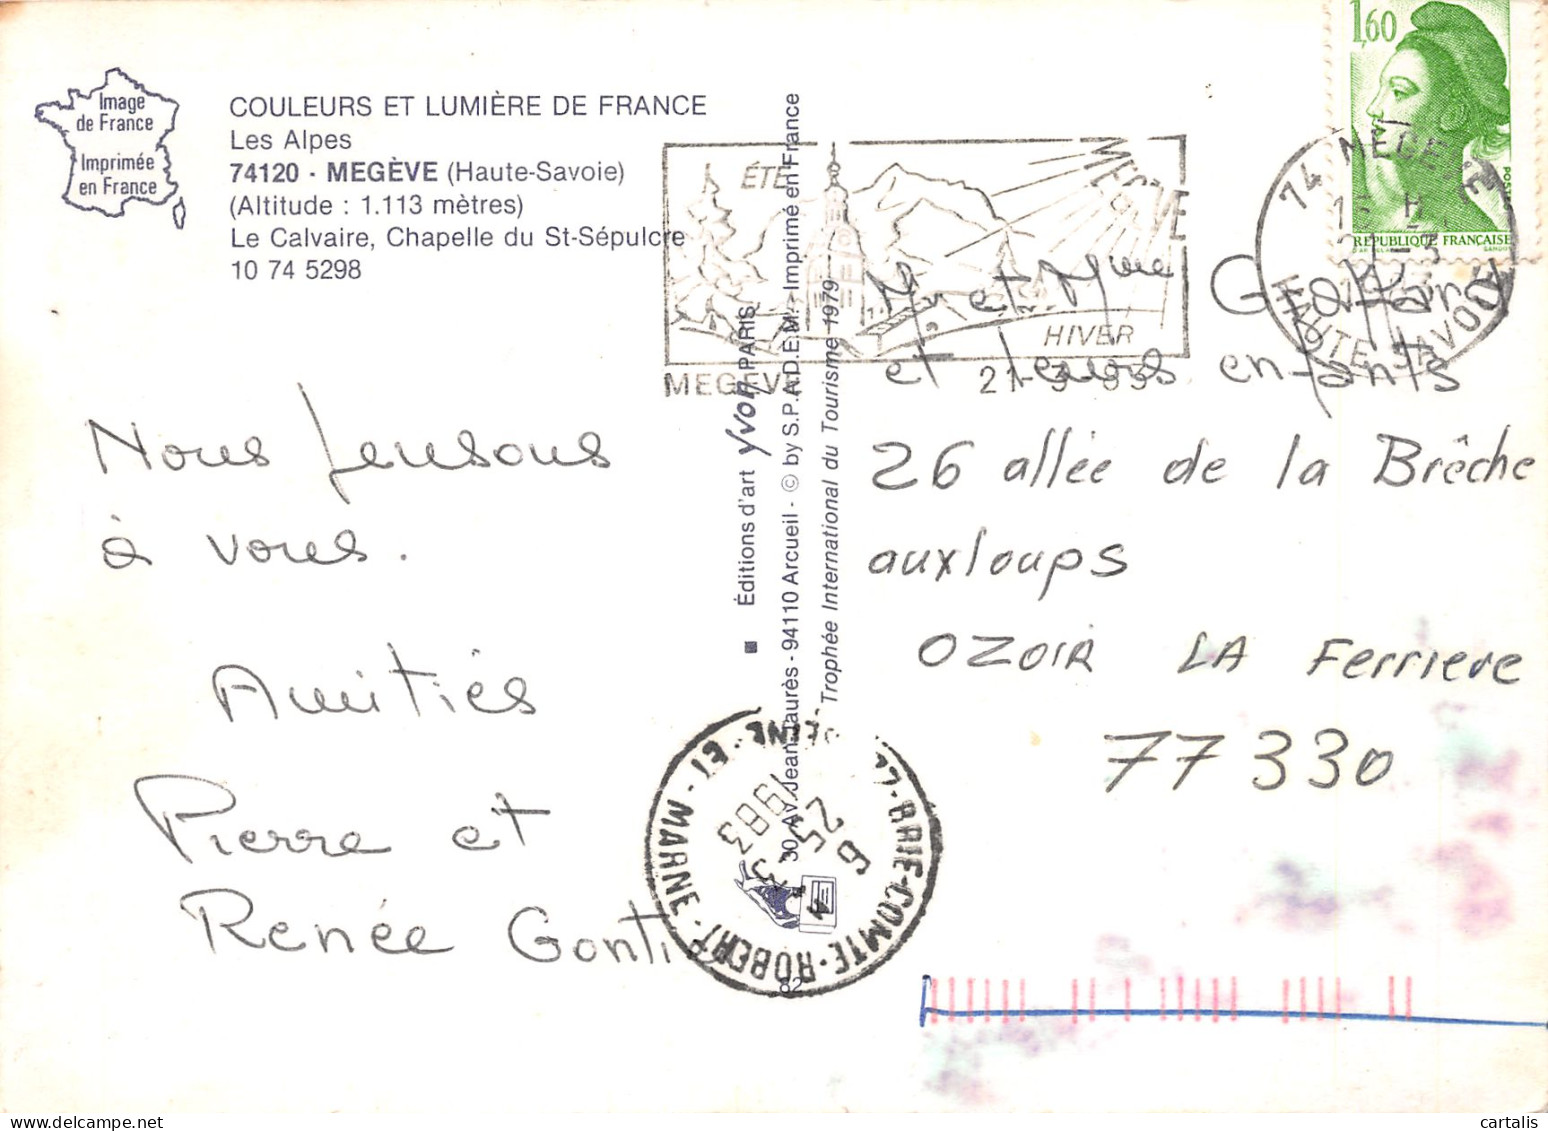 Image
de France
Imprimée
en France
COULEURS ET LUMIÈRE DE FRANCE
Les Alpes
74120 - MEGÈVE (Haute-Savoie)
(Altitude : 1.113 mètres)
Le Calvaire, Chapelle du St-Sépulcre
10 74 5298
Nous pensons
à vous.
Amitiés
Pierre et
Renée Gonti
■ Éditions d'art yvon PARIS
30, Av. Jean-Jaurès - 94110 Arcueil - © by S.P.A.D.E.M. - Imprimé en France
Trophée International du Tourisme 1979
82
ÉTÉ
MEGÈVE
HIVER
MEGEVE 21-3-83
1,60
POSTES
REPUBLIQUE FRANÇAISE
GANDON
74 MEGEVE
HAUTE SAVOIE
Mr et Mme
et leurs enfants
26 allée de la Brêche
aux loups
OZOIR LA Ferriere
77330
77-BRIE-COMTE-ROBERT
SEINE-ET-MARNE
1983
cartalis